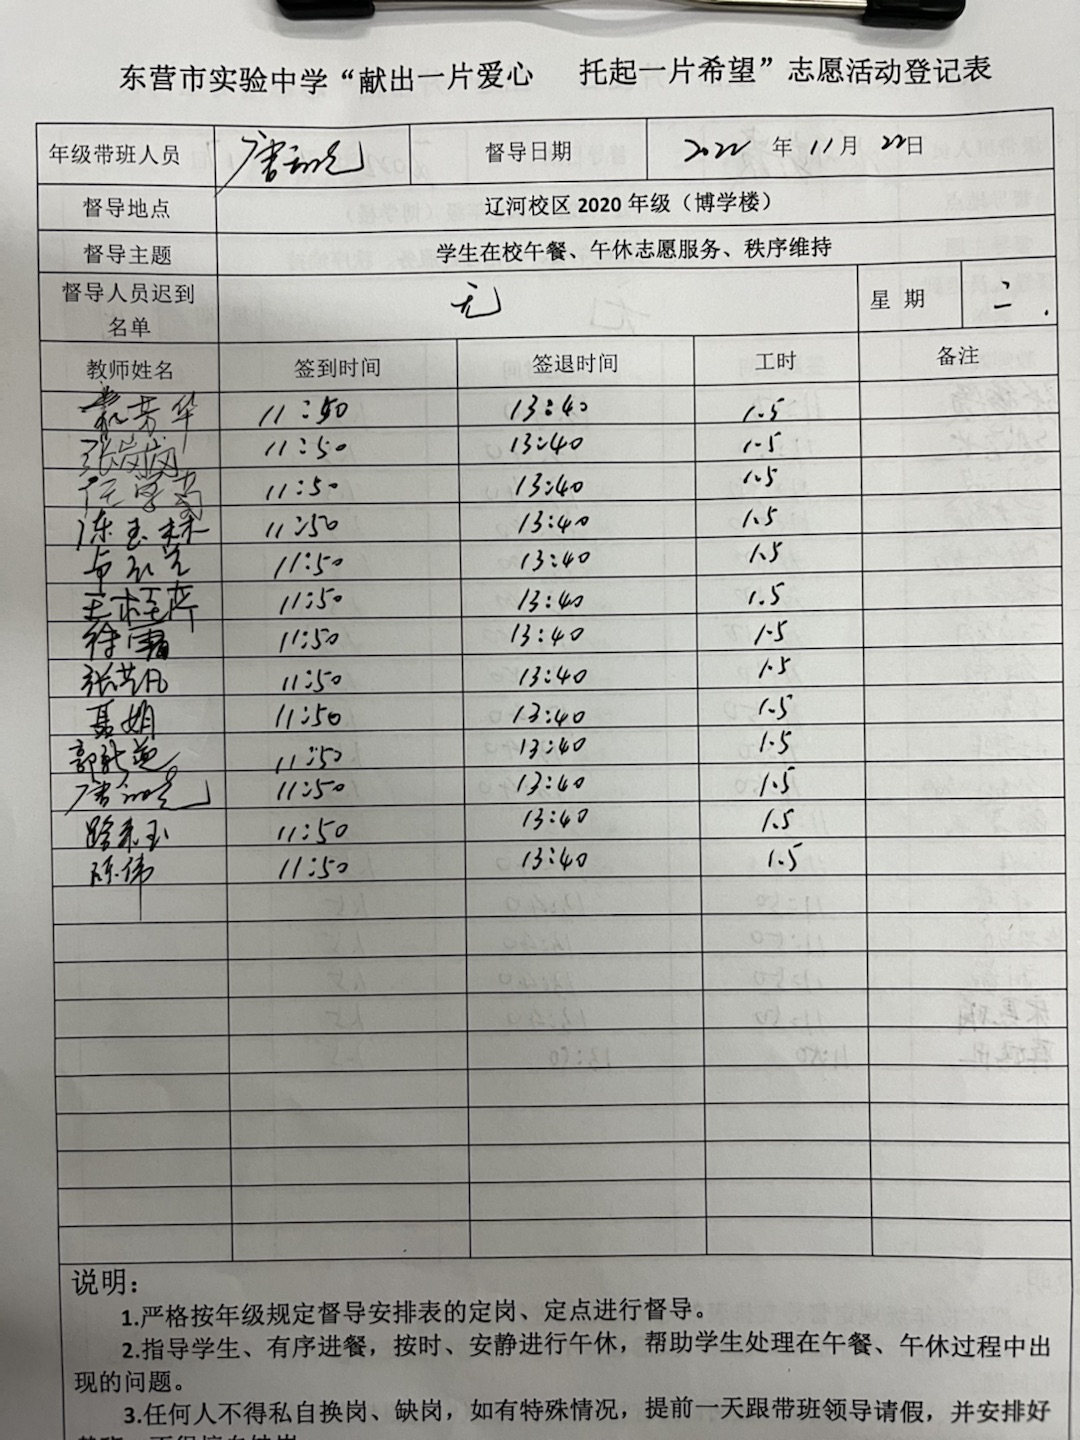 东营市实验中学“献出一片爱心 托起一片希望”志愿活动登记表
年级带班人员 督导日期 2022 年 11 月 22 日
督导地点 辽河校区 2020 年级（博学楼）
督导主题 学生在校午餐、午休志愿服务、秩序维持
督导人员迟到名单 无 星 期 二
教师姓名 签到时间 签退时间 工时 备注
芳华 11:50 13:40 1.5
张岗岗 11:50 13:40 1.5
任学菊 11:50 13:40 1.5
陈玉森 11:50 13:40 1.5
11:50 13:40 1.5
王 11:50 13:40 1.5
徐霞 11:50 13:40 1.5
张芸凡 11:50 13:40 1.5
聂娟 11:50 13:40 1.5
郭新燕 11:50 13:40 1.5
11:50 13:40 1.5
路来玉 11:50 13:40 1.5
陈伟 11:50 13:40 1.5
说明：
1.严格按年级规定督导安排表的定岗、定点进行督导。
2.指导学生、有序进餐，按时、安静进行午休，帮助学生处理在午餐、午休过程中出
现的问题。
3.任何人不得私自换岗、缺岗，如有特殊情况，提前一天跟带班领导请假，并安排好